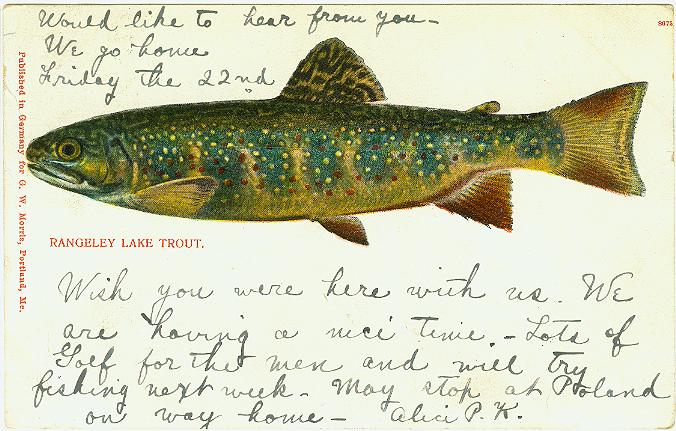 Would like to hear from you-
8075
We go home
Friday the 22nd
Published in Germany for G. W. Morris, Portland, Me.
RANGELEY LAKE TROUT.
Wish you were here with us. We
are having a nice time - Lots of
Golf for the men and will try
fishing next week - May stop at Poland
on way home - Alice P. K.